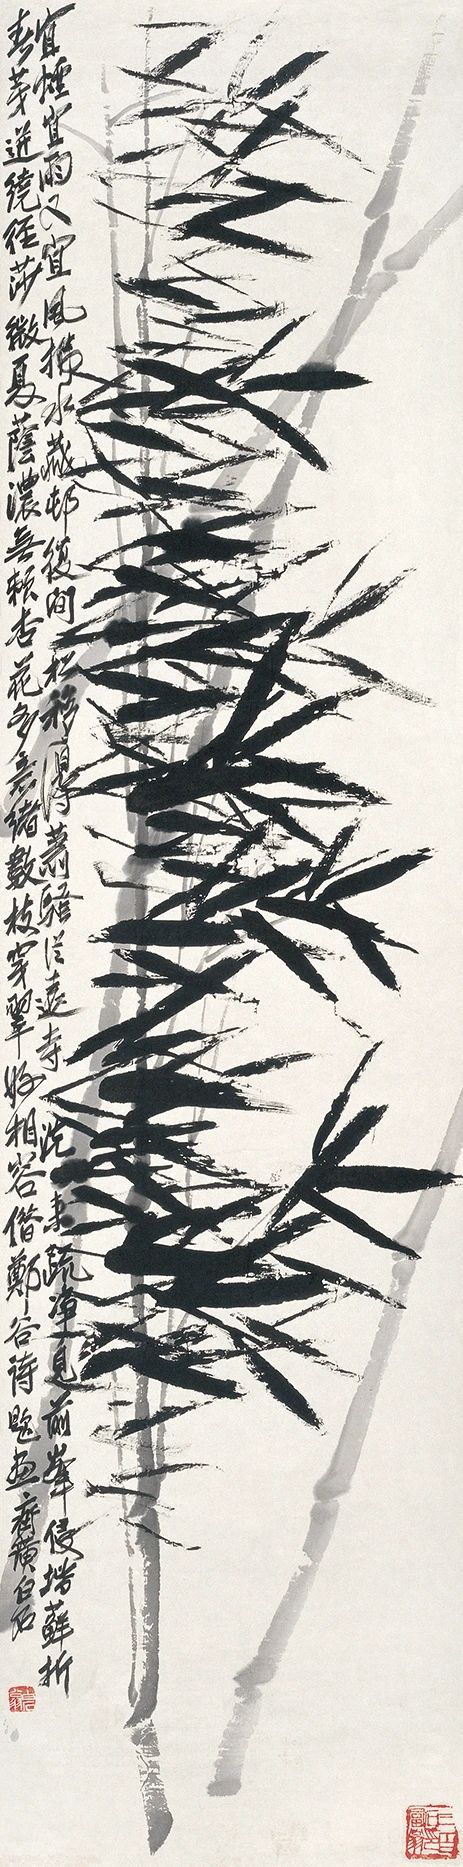 宜煙宜雨又宜風拂水藏邨復間松移得蕭騷從遠寺洗來疏淨見前峯侵階蘚折
春芽迸繞徑莎微夏蔭濃無賴杏花多意緒數枝穿翠好相容借鄭谷詩題畫齊璜白石